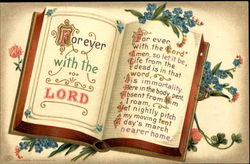 Forever
with the
LORD
"For ever
with the Lord"
Amen, so let it be,
Life from the
dead is in that
word,
'Tis immortality.
Here in the body pent,
Absent from Him
I roam,
Yet nightly pitch
my moving tent
A day's march
nearer home.